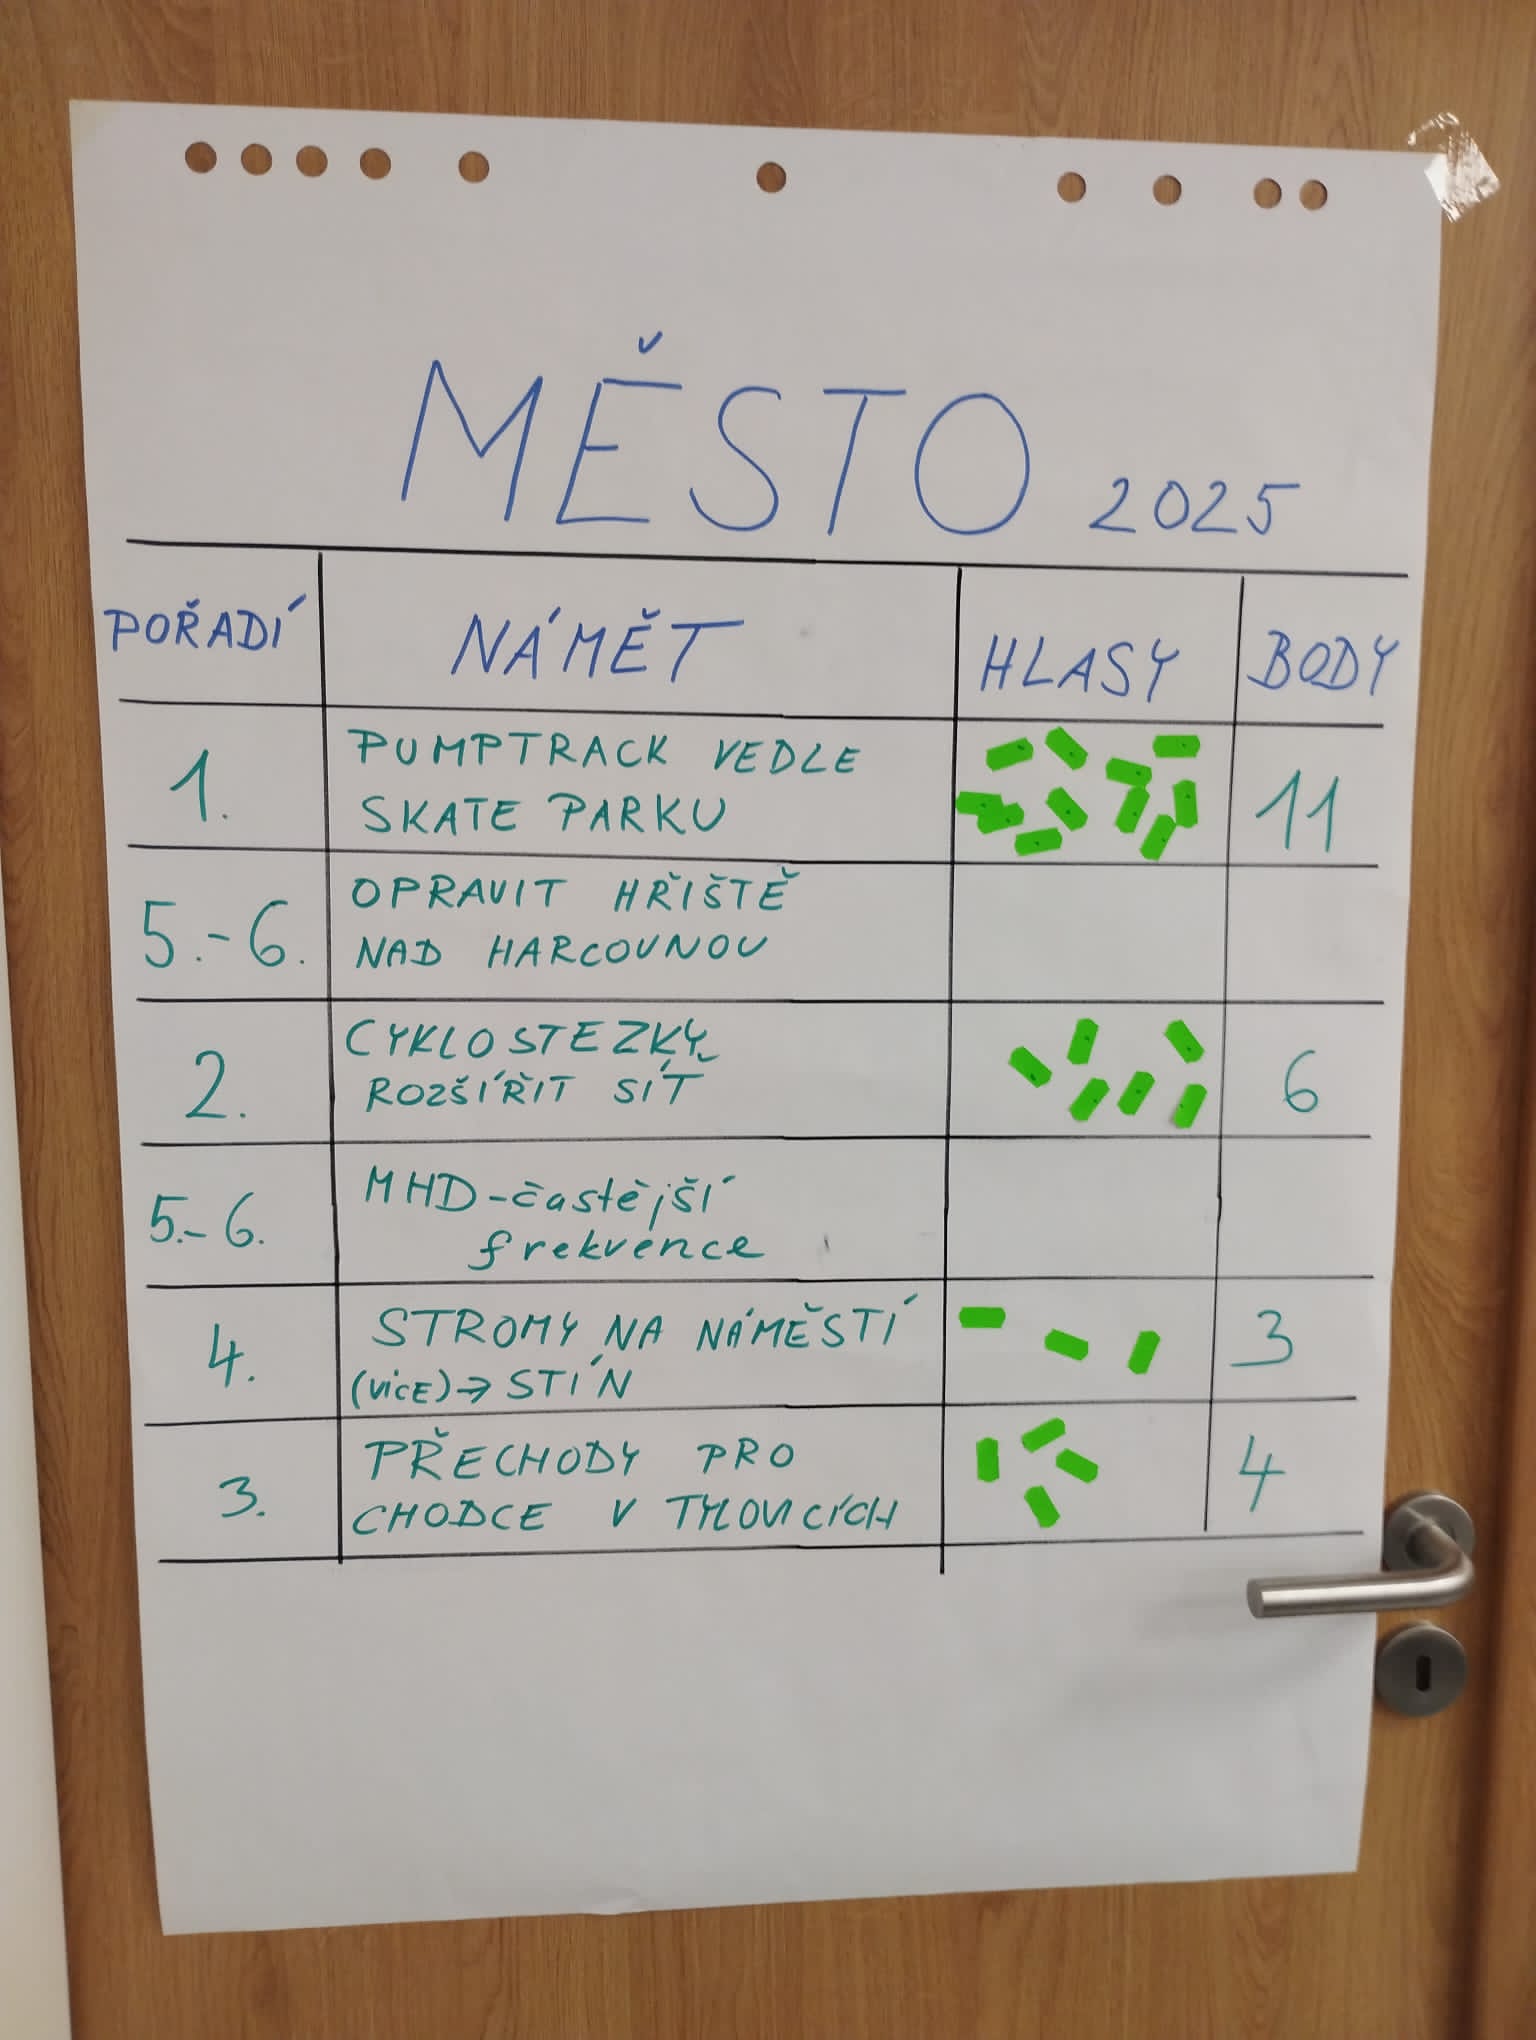 MĚSTO 2025
POŘADÍ NÁMĚT HLASY BODY
1. PUMPTRACK VEDLE
SKATE PARKU 11
5.-6. OPRAVIT HŘIŠTĚ
NAD HARCOVNOU
2. CYKLOSTEZKY
ROZŠÍŘIT SÍŤ 6
5.-6. MHD-častější
frekvence
4. STROMY NA NÁMĚSTÍ 3
(VíCE)→ STÍN
3. PŘECHODY PRO 4
CHODCE V TYLOVICÍCH